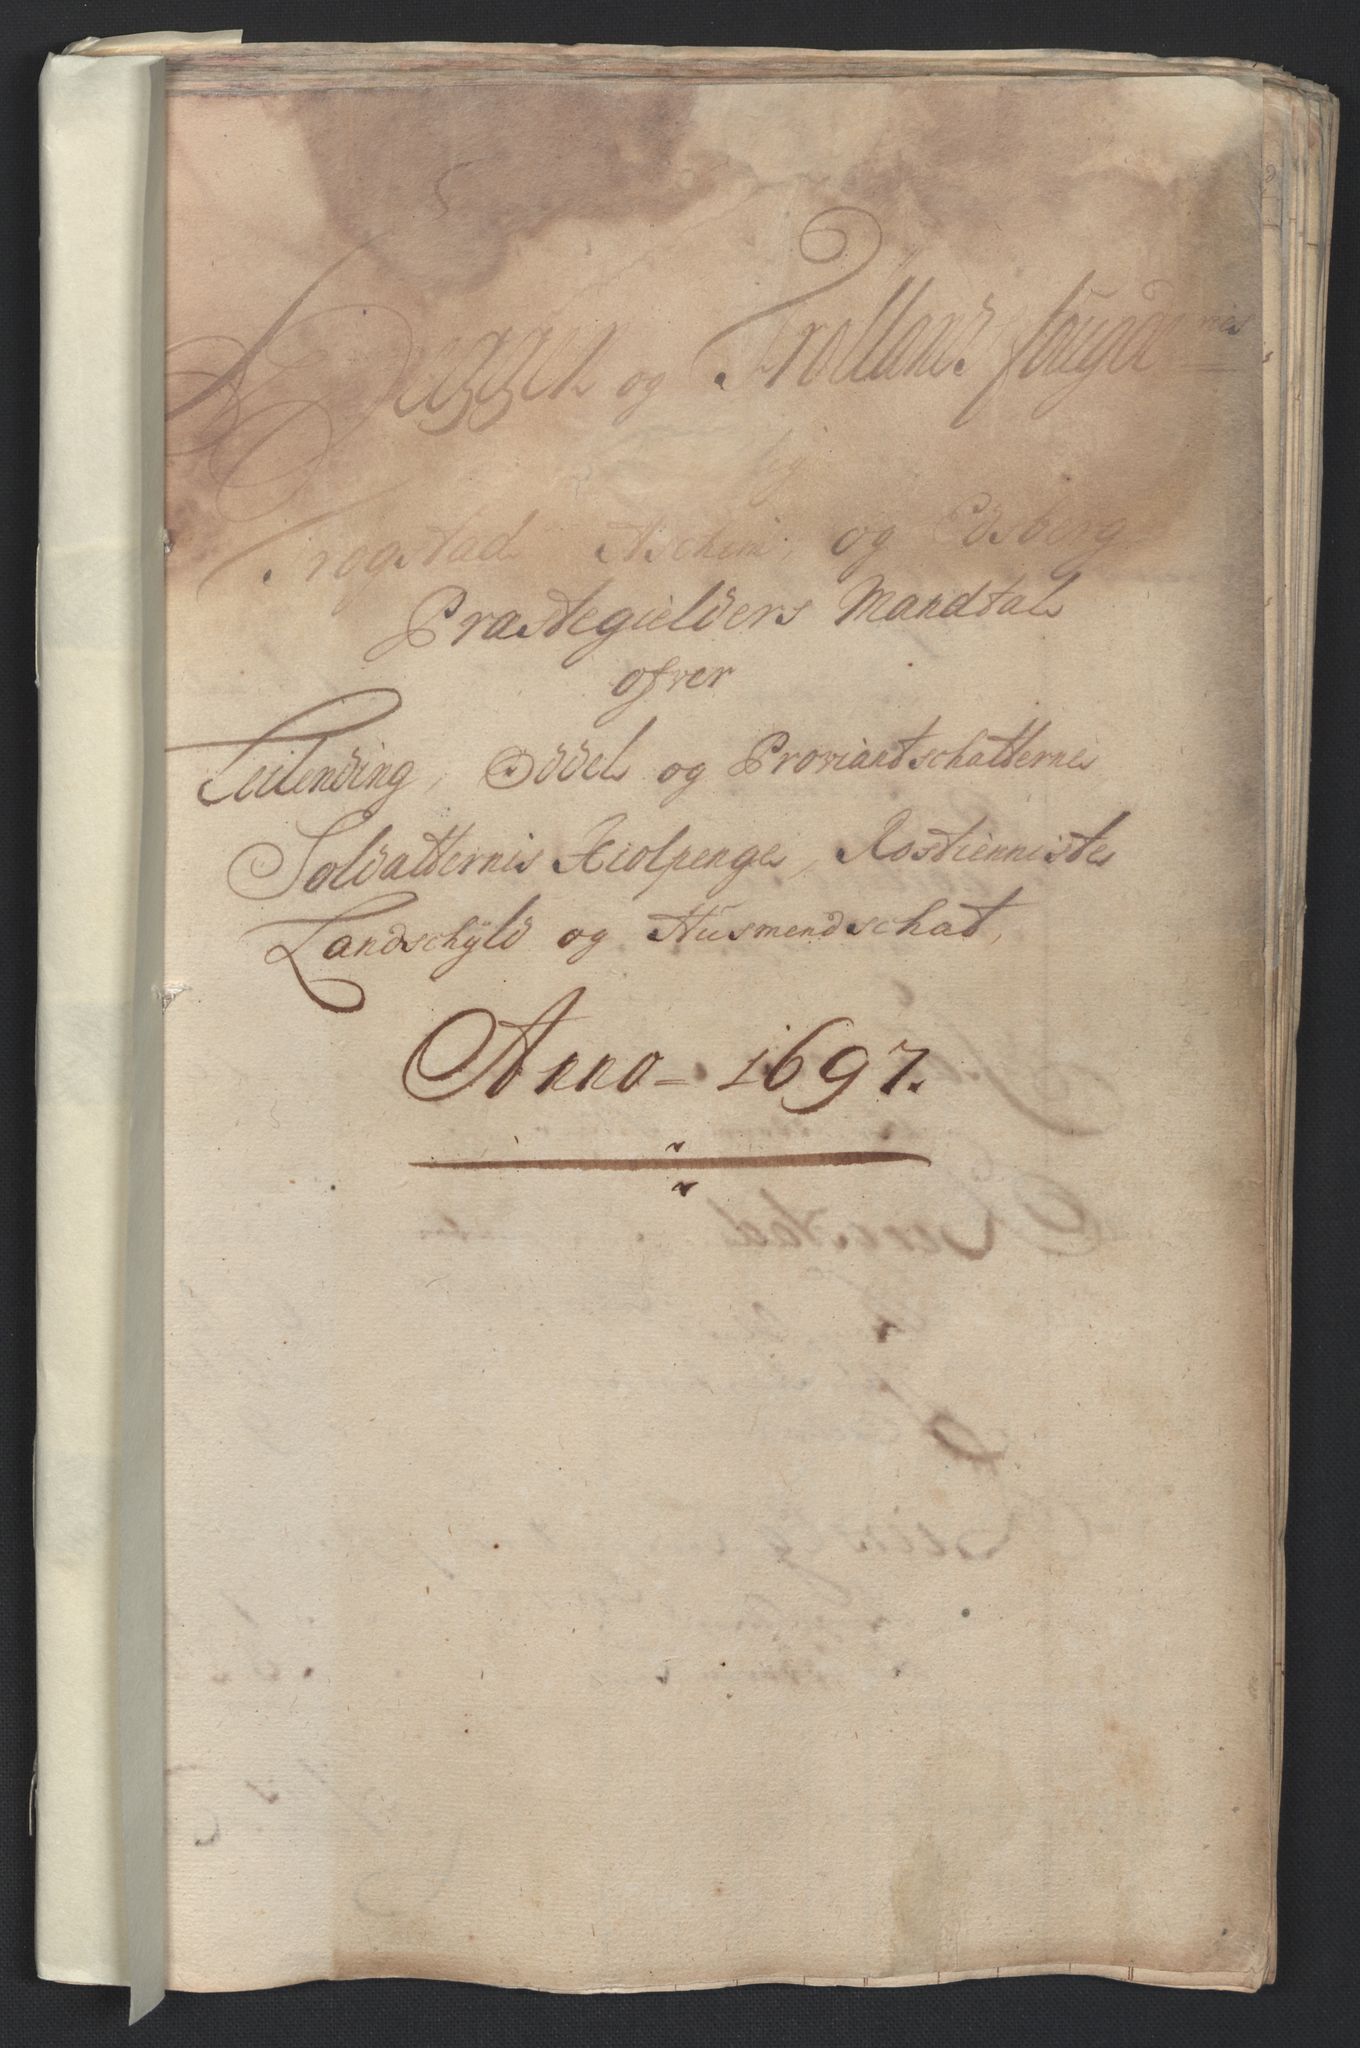 Heggen og Frøllands fougderies
Trøgstad Aschim, og Edsberg
Præstegielders Mandtal
ofver
Leilending, Oddel og Proviantschatterne
Soldatternis Hiolpenge, Rostienniste
Landschÿld og Husmendschat,
Anno - 1697.